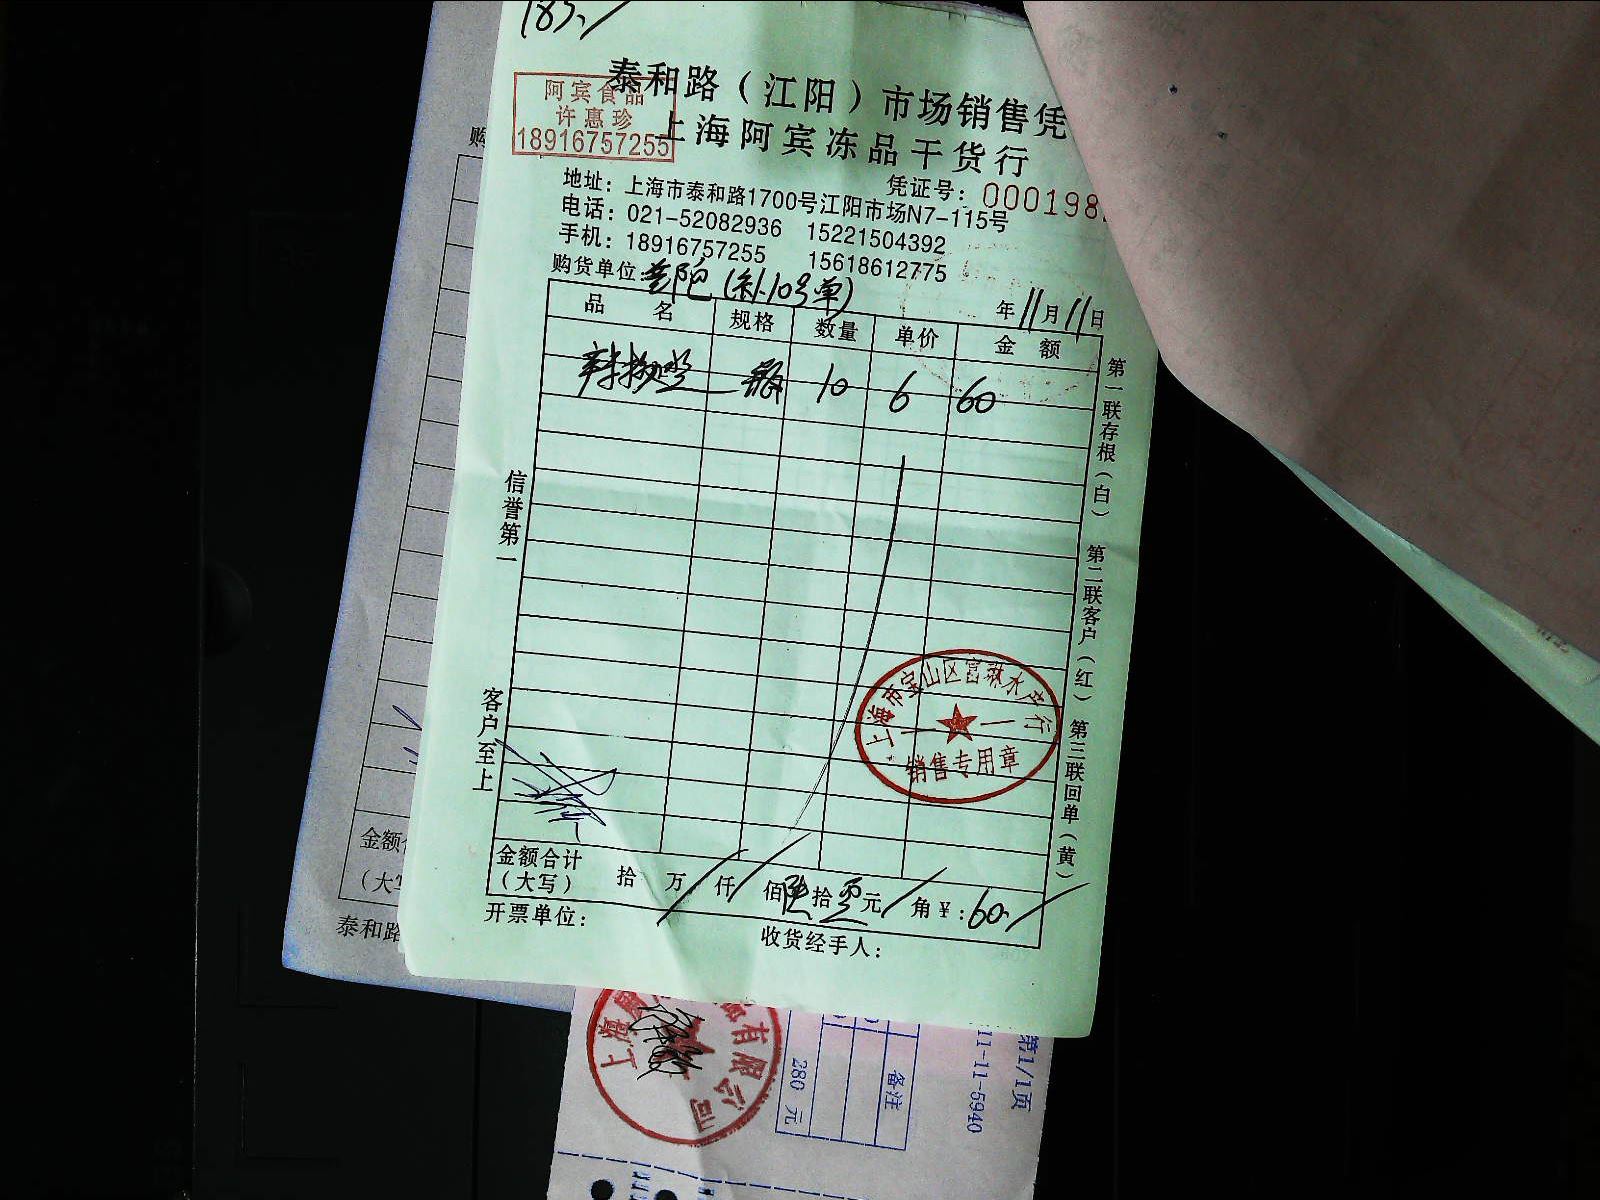 183./
泰和路（江阳）市场销售凭
上海阿宾冻品干货行
阿宾食品
许惠珍
18916757255
凭证号：000198
地址：上海市泰和路1700号江阳市场N7-115号
电话：021-52082936 15221504392
手机：18916757255 15618612775
购货单位：普陀（补10号单）
年11月11日
品名 规格 数量 单价 金额
瓶 10 6 60
信誉第一
客户至上
第一联存根（白） 第二联客户（红） 第三联回单（黄）
上海市宝山区富琳水产行
销售专用章
金额合计
（大写） 拾 万 仟 佰 陆拾零元 角 ¥：60./
开票单位：
收货经手人：
购
金额
（大写
泰和路
上海
有限公司
280 元
备注
11-11-5940
第1/1页